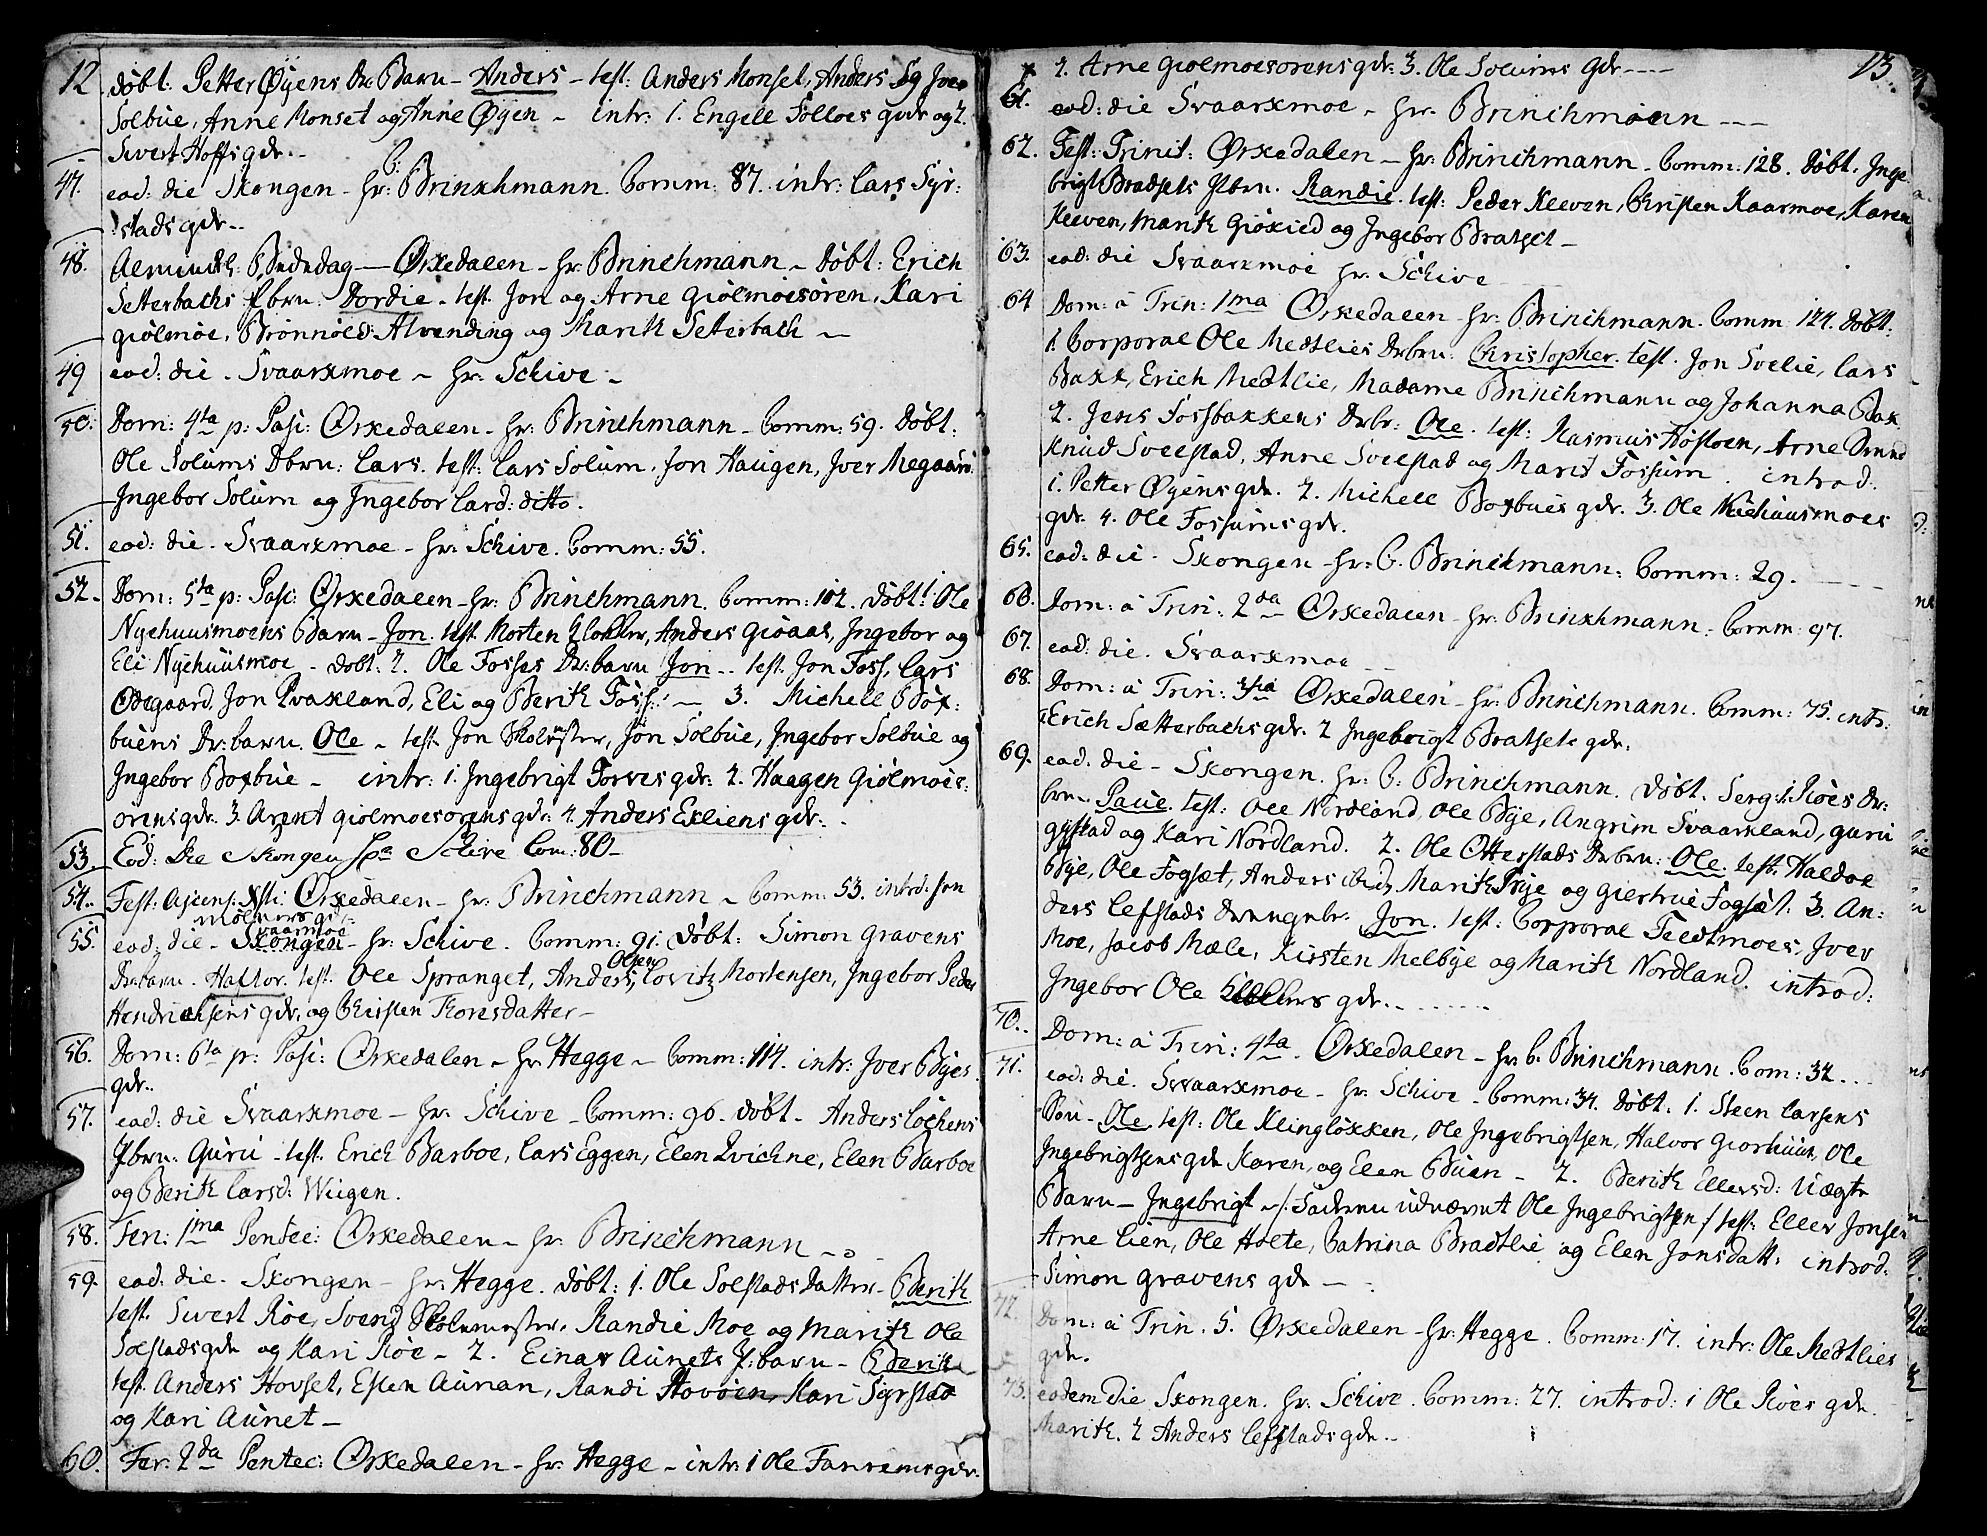 12. døbt: Petter Øyens Dr: Barn - Anders - test: Anders Monset, Anders og Jver
Solbue, Anne Monset og Anne Øyen - intr: 1. Engell Solloes gdr og 2.
Sivert Hoffs gdr..
47. eod: die Skongen - hr: C: Brinchmann. Comm: 87. intr: Lars Syr:
stads gdr..
48. Almindel: Bededag - Ørkedalen - hr: Brinchmann - døbt: Erich
Setterbachs Pbrn: Dordie - test. Jon og Arne Giølmoesøren, Kari
Giølmoe, Brønnøld: Alvending og Marith Setterbach -
49 eod: die - Svaarkmoe - hr: Schive -
50. Dom: 4ta p: Pasc: Ørkedalen - hr: Brinchmann - Comm: 59. døbt:
Ole Solums Dbrn: Lars. test: Lars Solum, Jon Haugen, Jver Megaarn
Ingebor Solum og Ingebor Larsd: ditto.
51. eod: die. Svaarkmoe - hr: Schive. Comm: 55.
52. Dom: 5ta p: Pasc: Ørkedalen - hr: Brinchmann. Comm: 102. døbt: 1. Ole
Nyehuusmoens Barn - Jon. test. Morten Klokker, Anders Gioaas, Ingebor og
Eli Nyehuusmoe - døbt: 2. Ole Fosses Dr: barn Jon -- test. Jon Foss, Lars
Ødegaard, Jon Qvakland, Eli og Berith Foss: - 3. Michell Box:
buens Dr: barn. Ole - test. Jon Skolmester, Jon Solbue, Ingebor Solbue og
Ingebor Boxbue - intr: 1. Ingebrigt Forves gdr: 2. Haagen Giølmoes:
orens gdr: 3. Arent Giolmoesorens gdr: 4. Anders Exliens gdr:.
53. Eod: Die Skongen hr Schive Com: 80-
54. Fest: Ascens: Xsti: Ørkedalen - hr: Brinchmann - Comm: 53. introd: Jon
Molmoes gdr:
Svaarmoe
55. eod: die - Skongen - hr: Schive. Comm: 91. døbt: Simon Gravens
Olsen
Dr: barn. Haftor. test. Ole Spranget, Anders, Lovitz Mortensen, Ingebor Peder
Hendrichsens gdr. og Christen Thoresdatter -
56. Dom: 6ta p: Pasc: Ørkedalen - hr Hegge - Comm: 114. intr: Jver Byes
gdr..
57. eod: die Svaarkmoe - hr: Schive - Comm: 96. døbt - Anders Lochens
Pbrn: Guru - test. Erich Barboe, Lars Eggen, Elen Qvichne, Elen Barboe
og Berith Larsd: Wiigen.
58. Fer: 1ma Pentec: Ørkedalen - hr: Brinchmann -
59. eod: die. Skongen - hr: Hegge. døbt: 1. Ole Solstads datter - Berith
test. Sivert Roe, Svend Skolemester, Randie Moe og Marith Ole
Solstads gdr og Kari Roe - 2. Einar Aunets P: barn - Berith
test. Anders Hovset, Esten Aunan, Randi Hovoien, Kari Syrstad
og Kari Aunet -
60. Fer: 2da Pentec: Ørkedalen - hr: Hegge - intr: 1 Ole Fanrems gdr:
13.
2. Arne Giolmoesorens gdr: 3. Ole Solums gdr----
61. eod: die Svaarkmoe - hr: Brinchmann ---
62. Fest: Trinit: Ørkedalen - hr: Brinchmann - Comm: 128. døbt. Inge
brigt Bradsets Pbrn. Randie. test: Peder Kleven, Christen Kaarmoe, Karen
Kleven, Marith Gioxied og Ingebor Bratset -
63. eod: die Svaarkmoe hr: Schive
64 Dom: à Trin: 1ma Ørkedalen - hr: Brinchmann. Comm 124. døbt:
1. Corporal Ole Medtlies Drbrn: Christopher. test. Jon Svelie, Lars
Baxk, Erich Medtlie, Madame Brinchmann og Johanna Bak
2. Jens Fossbakkens Drbr: Ole. test: Rasmus Høstoen, Arne
Knud Sveistad, Anne Sveistad og Marit Fossum. introd:
1. Petter Øyens gdr. 2. Michell Boxbues gdr. 3. Ole Niehuusmoes
gdr. 4. Ole Fossums gdr.
65. eod: die - Skongen - hr: C. Brinchmann: Comm: 29. ----
66. Dom: à Trin: 2da Ørkedalen - hr: Brinchmann: Comm: 97.
67. eod: die. Svaarkmoe --
68. Dom: à Trin: 3tia Ørkedalen - hr: Brinchmann. Comm: 75. intr:
1. Erich Sætterbachs gdr. 2 Ingebrigt Bratsets gdr.
69. eod: die - Skongen. hr: C: Brinchmann. døbt. Serg: Roes Dr:
brn. Paul. test: Ole Nordland, Ole Bye, Angrim Svaarkland, Guru
Gystad og Kari Nordland. 2. Ole Otterstads Drbrn: Ole. test: Haldoe
Bye, Ole Fogsæt, Anders ibid, Marith Bye og Giertrue Fogsæt. 3. An:
ders Lefstads drengebr. Jon. test: Corporal Fledtmoes, Jver
Moe, Jacob Mæle, Kirsten Melbye og Marith Nordland. introd:
Ingebor Ole gdr. ------
70. Dom: à Trin: 4ta. Ørkedalen - hr C. Brinchmann. Com: 32...
71. eod: die. Svaarkmoe - hr: Schive - Comm: 34. døbt: 1. Steen Larsens
Søn - Ole. test: Ole Klingløkken, Ole Ingebrigtsen, Halvor Giorhuus, Ole
Ingebrigtsens gdr Karen, og Elen Buen - 2. Berith Ellersd: Uægte
Barn - Ingebrigt -/: Faderen udnævnt Ole Ingebrigtsen :/ test: Eller Jonsen
Arne Lien, Ole Holte, Catrina Bradtlie og Elen Jonsdatt: introd:
Simon Gravens gdr - .
72. Dom: à Trin. 5. Ørkedalen - hr: Hegge. Comm: 17. intr: Ole Medtlies
gdr.
73. eodem die Skongen. hr. Schive. Comm: 27. introd: 1 Ole Roes gdr.
Marith. 2 Anders Lefstads gdr..